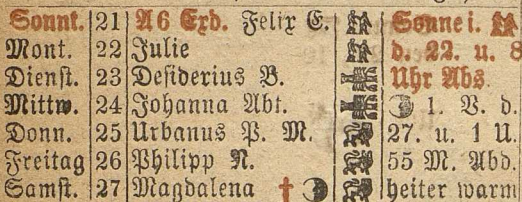 Sonnt. 21 A 6 Exd. Felix E. Sonne i.
Mont. 22 Julie d. 22. u. 8
Dienst. 23 Desiderius B. Uhr Abs.
Mittw. 24 Johanna Abt. 1. V. d.
Donn. 25 Urbanus P. M. 27. u. 1 U.
Freitag 26 Philipp N. 55 M. Abd.
Samst. 27 Magdalena † heiter warm